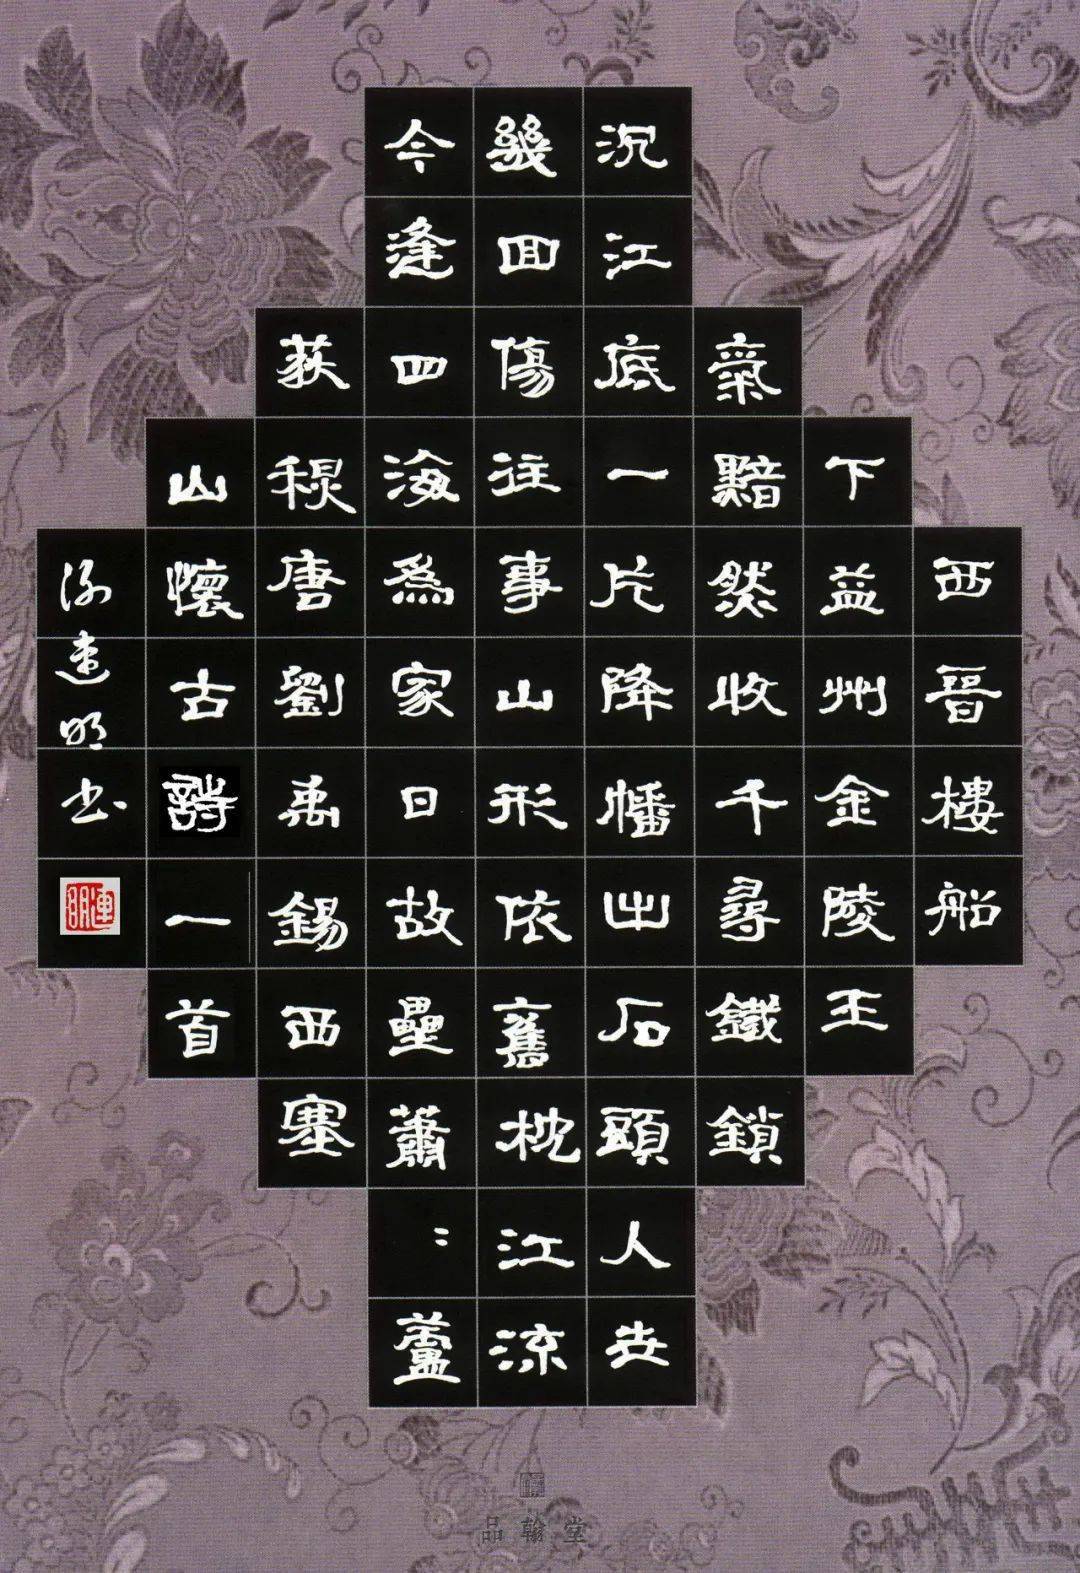 西晉樓船
下益州金陵王
氣黯然收千尋鐵鎖
沉江底一片降幡出石頭人世
幾回傷往事山形依舊枕江流
今逢四海為家日故壘蕭〻蘆
荻秋唐劉禹錫西塞
山懷古詩一首
連明书
連明
品翰堂